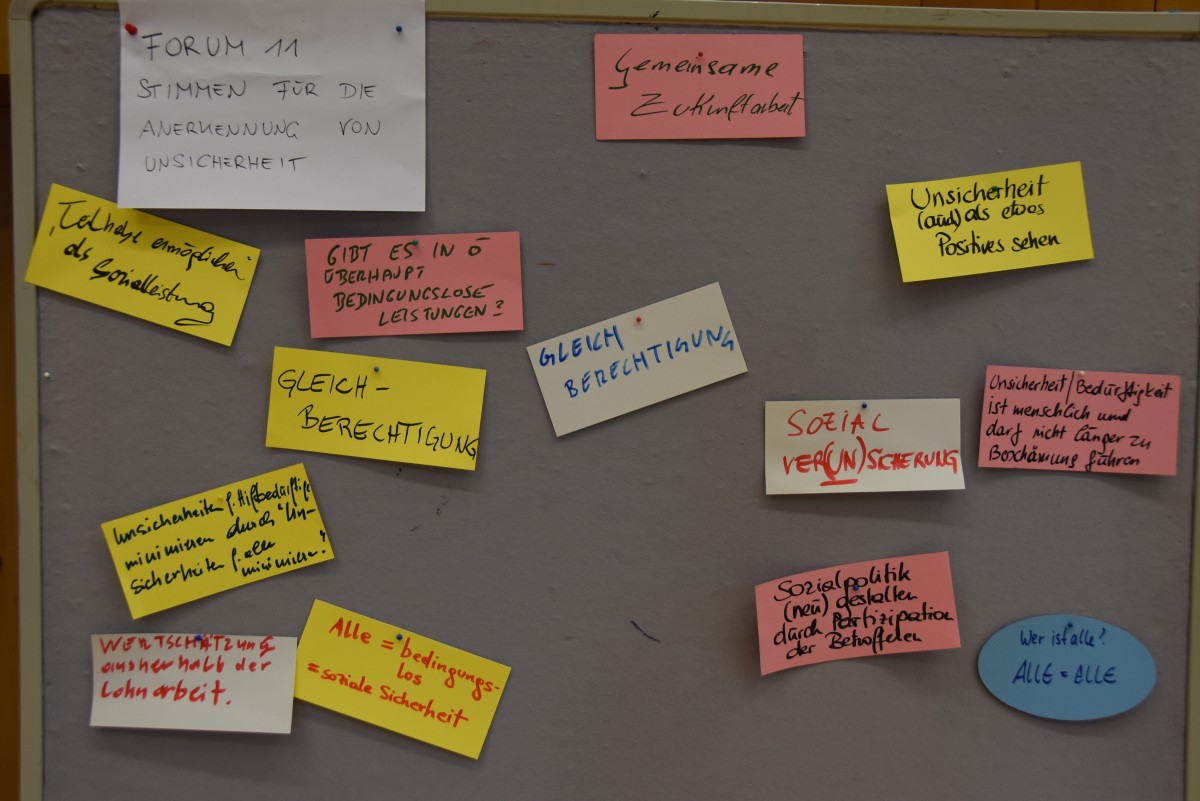 FORUM 11
STIMMEN FÜR DIE
ANERKENNUNG VON
UNSICHERHEIT
Gemeinsame
Zukunftarbeit
Unsicherheit
(auch) als etwas
Positives sehen
Teilhabe ermöglichen
als Sozialleistung
GIBT ES IN Ö
ÜBERHAUPT
BEDINGUNGSLOSE
LEISTUNGEN?
GLEICH
BERECHTIGUNG
GLEICH-
BERECHTIGUNG
SOZIAL
VER(UN)SICHERUNG
Unsicherheit/Bedürftigkeit
ist menschlich und
darf nicht länger zu
Beschämung führen
Unsicherheiten f. Hilfbedürftige
minimieren durch "Un-
sicherheiten f. alle
minimieren"
WERTSCHÄTZUNG
ausherhalb der
Lohnarbeit.
Alle = bedingungs-
los
= soziale Sicherheit
Sozialpolitik
(neu) gestalten
durch Partizipation
der Betroffenen
Wer ist alle?
ALLE = ALLE